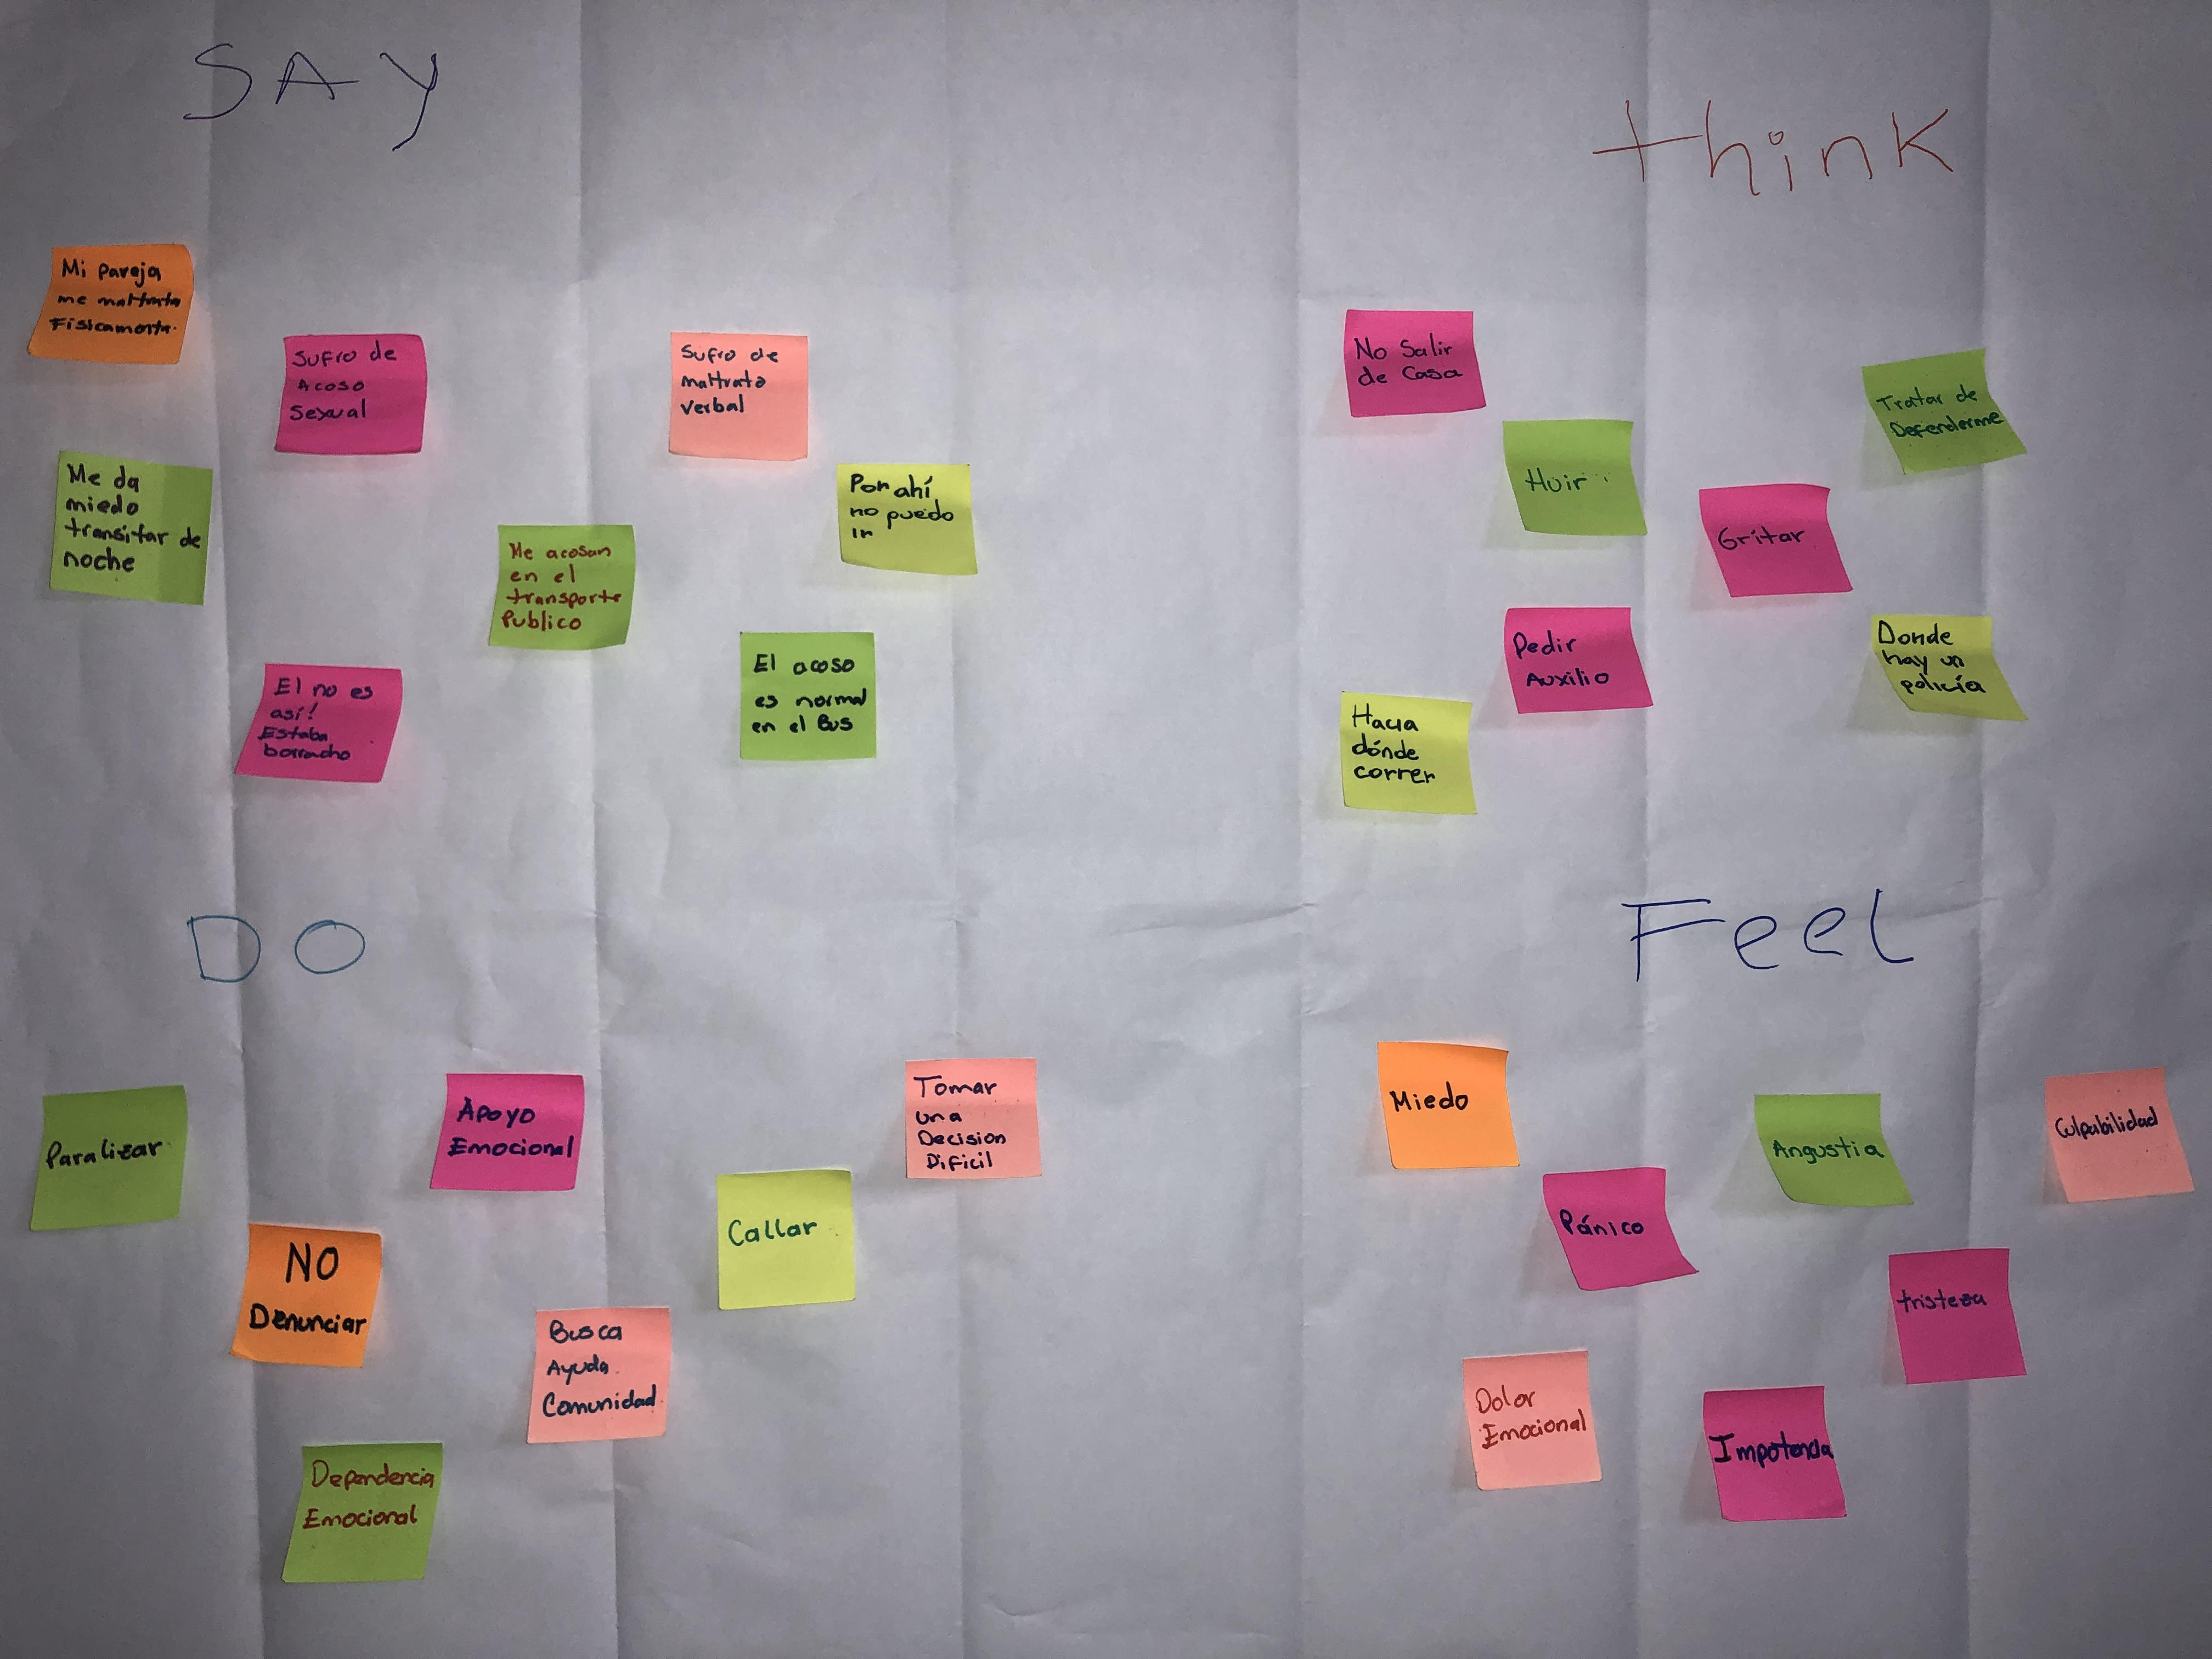 SAY
Mi pareja
me maltrata
Fisicamente.
Sufro de
Acoso
Sexual
Sufro de
maltrato
Verbal
Me da
miedo
transitar de
noche
Me acosan
en el
transporte
Publico
Por ahí
no puedo
ir
El no es
así!
Estaba
borracho
El acoso
es normal
en el Bus
think
No Salir
de Casa
Huir
Tratar de
Defenderme
Gritar
Pedir
Auxilio
Donde
hay un
policía
Hacia
dónde
correr
DO
Paralizar
Apoyo
Emocional
Tomar
una
Decision
Dificil
NO
Denunciar
Callar
Busca
Ayuda
Comunidad
Dependencia
Emocional
Feel
Miedo
Angustia
Culpabilidad
Pánico
tristeza
Dolor
Emocional
Impotencia